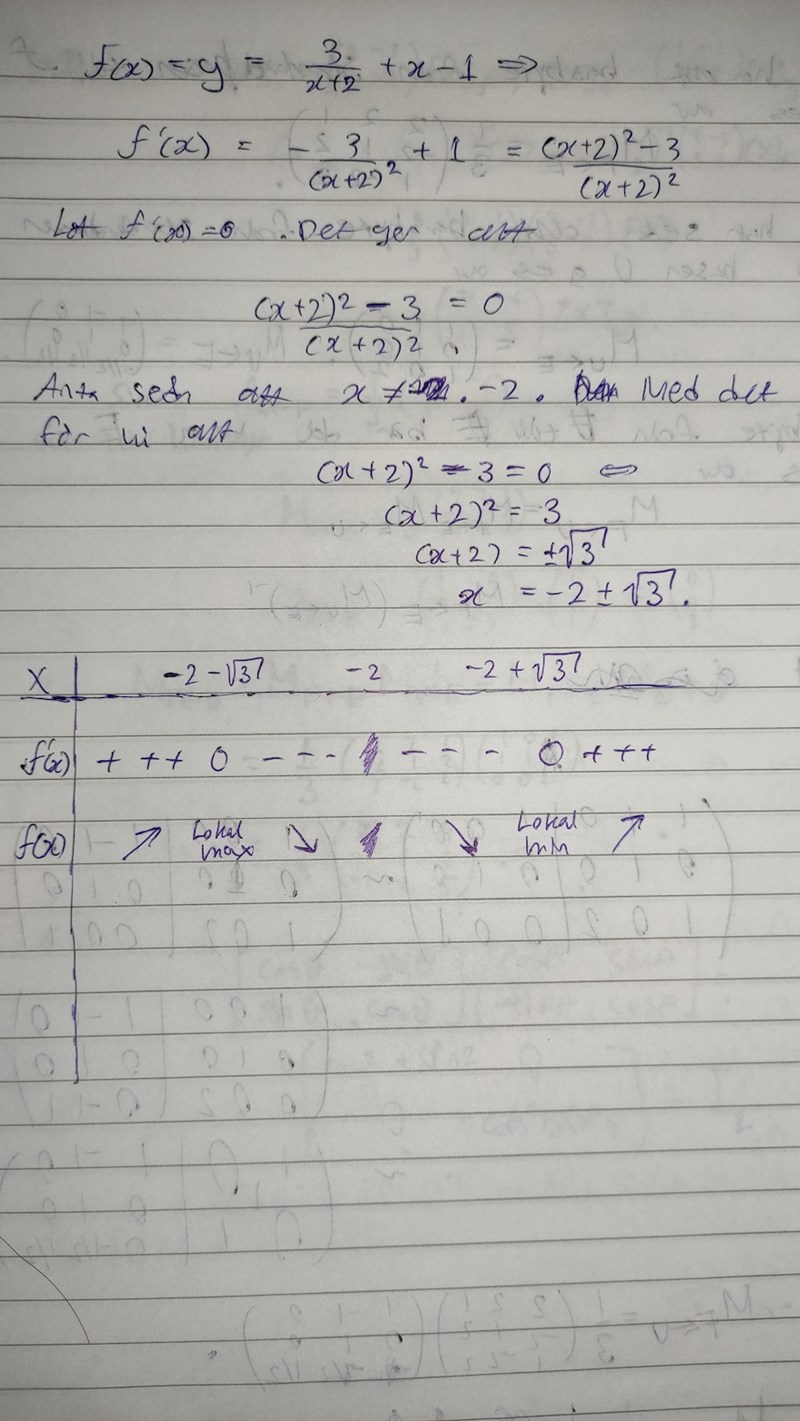 f(x) = y = 3/(x+2) + x - 1 ⇒
f'(x) = - 3/(x+2)² + 1 = ((x+2)² - 3)/(x+2)²
Låt f'(x) = 0 . Det ger att
((x+2)² - 3)/(x+2)² = 0
Anta sedn att x ≠ -2. Med det
får vi att
(x+2)² - 3 = 0 ⇔
(x+2)² = 3
(x+2) = ±√3
x = -2 ± √3.
x -2-√3 -2 -2+√3
f'(x) + ++ 0 - - - - - - 0 + ++
f(x) ↗ Lokal max ↘ ↘ Lokal min ↗